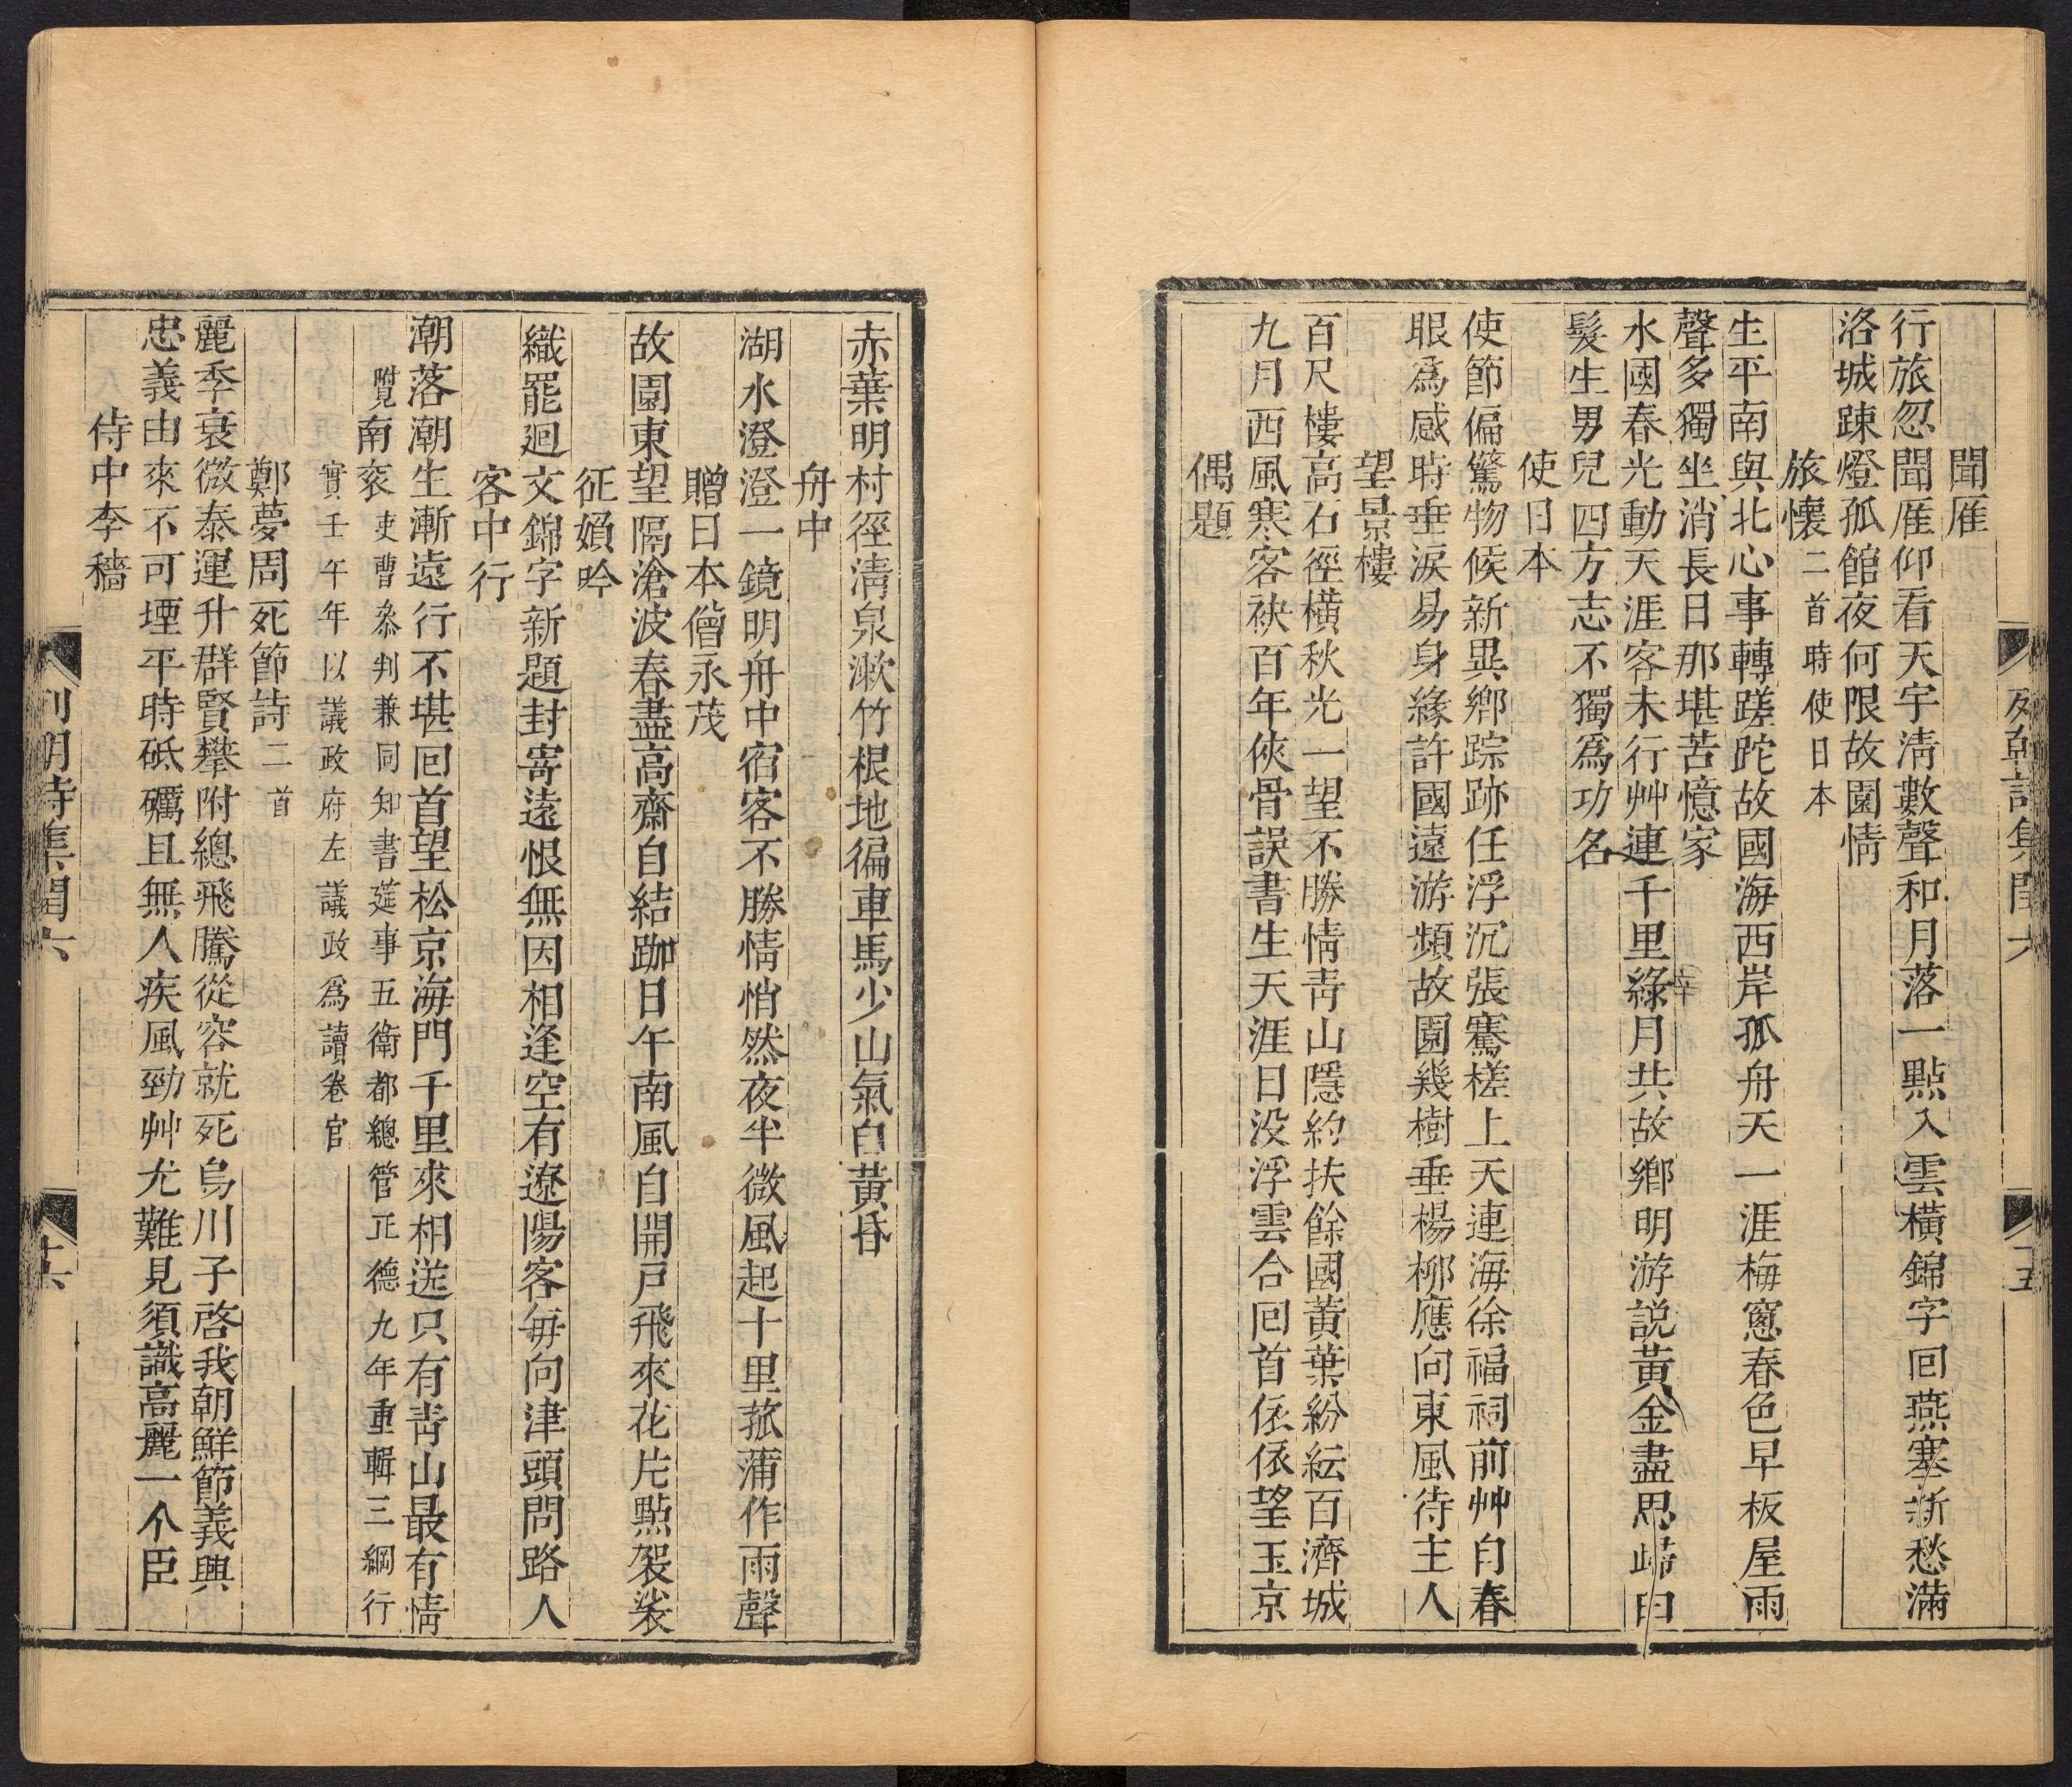 聞雁
行旅忽聞雁仰看天宇淸數聲和月落一點入雲橫錦字回燕塞新愁滿
洛城踈燈孤館夜何限故園情
旅懷二首時使日本
生平南與北心事轉蹉跎故國海西岸孤舟天一涯梅窻春色早板屋雨
聲多獨坐消長日那堪苦憶家
水國春光動天涯客未行艸連千里綠月共故鄉明游説黃金盡思歸白
髮生男兒四方志不獨爲功名
使日本
使節偏驚物候新異鄉踪跡任浮沉張騫槎上天連海徐福祠前艸自春
眼爲感時垂淚易身緣許國遠游頻故園幾樹垂楊柳應向東風待主人
望景樓
百尺樓高石徑橫秋光一望不勝情靑山隱約扶餘國黃葉紛紜百濟城
九月西風寒客袂百年俠骨誤書生天涯日没浮雲合回首依依望玉京
偶題
赤葉明村徑淸泉漱竹根地徧車馬少山氣自黃昏
舟中
湖水澄澄一鏡明舟中宿客不勝情悄然夜半微風起十里菰蒲作雨聲
贈日本僧永茂
故園東望隔滄波春盡高齋自結跏日午南風自開戸飛來花片點袈裟
征嬪吟
織罷廻文錦字新題封寄遠恨無因相逢空有遼陽客每向津頭問路人
客中行
潮落潮生漸遠行不堪回首望松京海門千里來相送只有靑山最有情
附見南袞吏曹叅判兼同知書筵事五衛都總管正德九年重輯三綱行
實壬午年以議政府左議政爲讀卷官
鄭夢周死節詩二首
麗季衰微泰運升群賢攀附總飛騰從容就死烏川子啓我朝鮮節義興
忠義由來不可堙平時砥礪且無人疾風勁艸尤難見須識高麗一个臣
侍中李穡